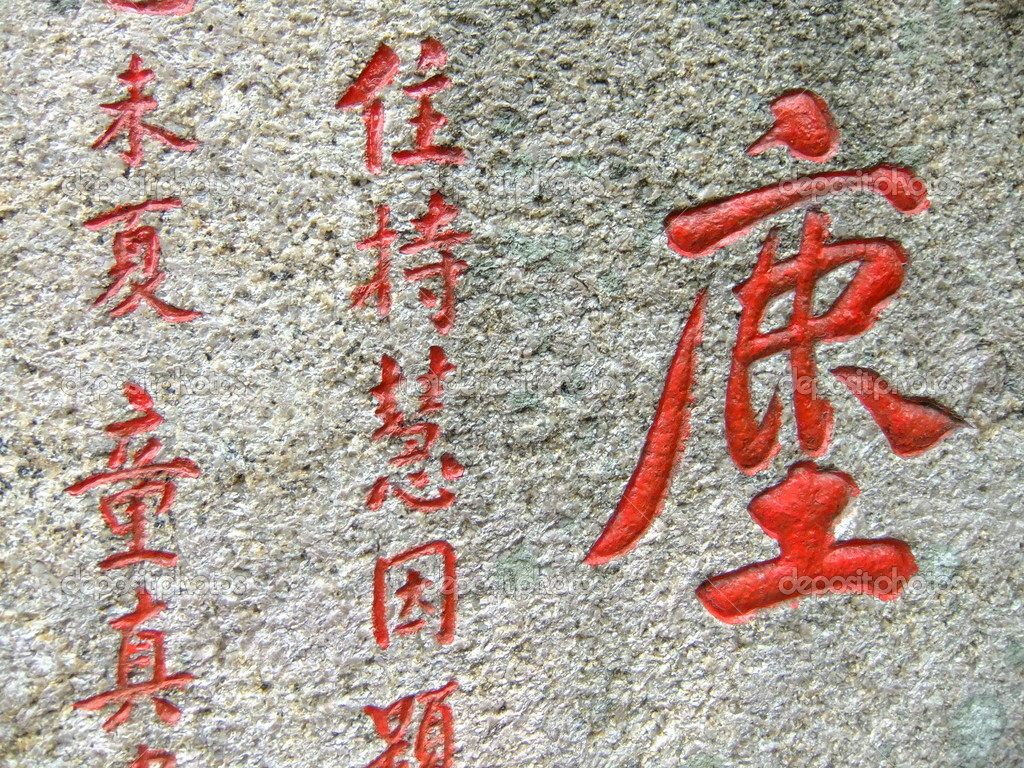 塵
住持慧因題
未夏 童真
depositphotos depositphotos depositphotos
depositphotos depositphotos depositphotos
depositphotos depositphotos depositphotos